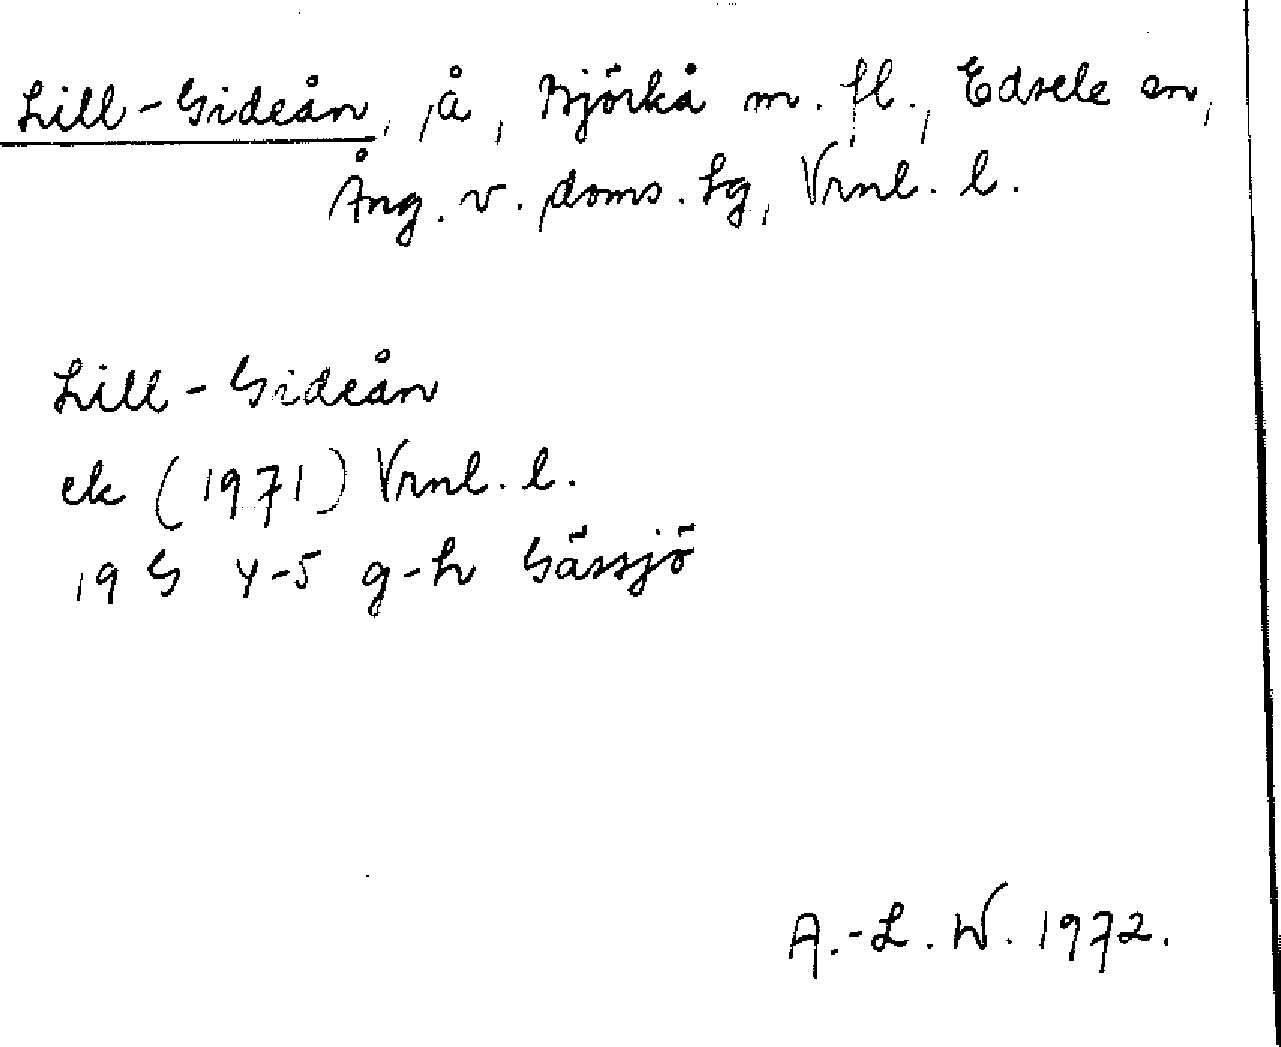 Lill-Gideån, å, Björkå m. fl., Edsele sn,
Ång. v. doms. lg, Vrnl. l.
Lill-Gideån
ek (1971) Vrnl. l.
19 G 4-5 g-h Gässjö
A.-L. W. 1972.